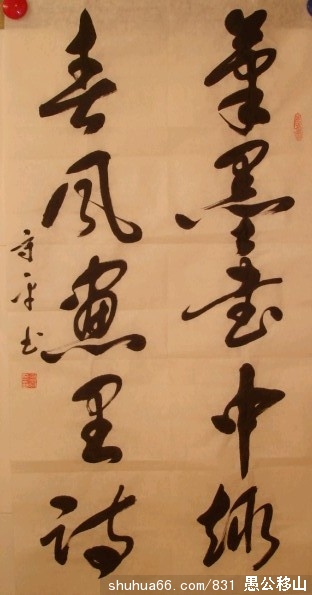 笔墨书中趣
春风画里诗
守平书
shuhua66.com/831 愚公移山